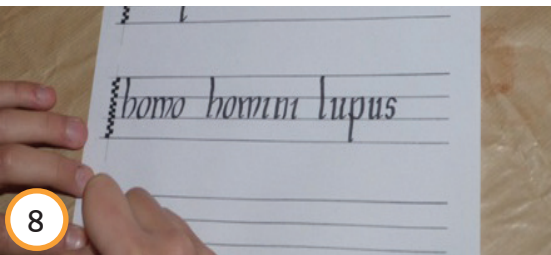 homo homini lupus
8